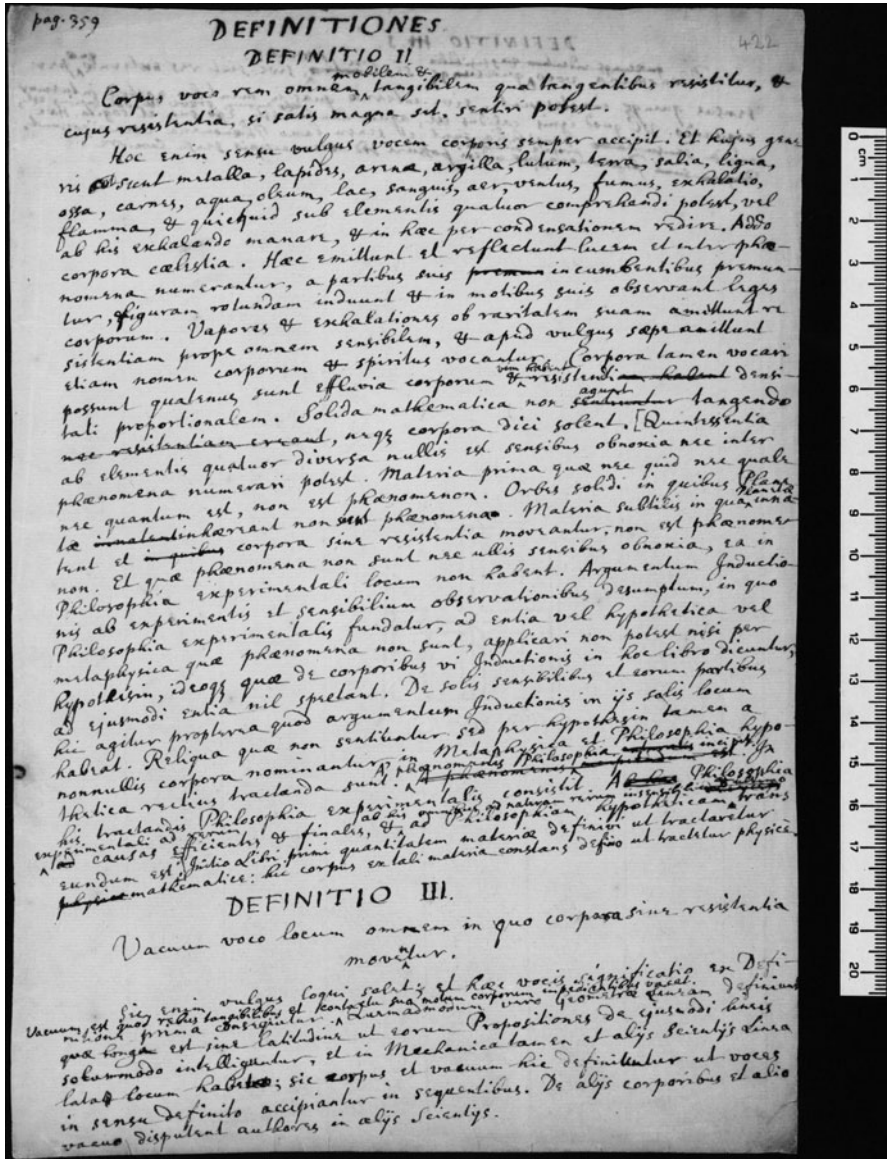 pag. 359
DEFINITIONES
422
DEFINITIO II
mobilem &
Corpus voco rem omnem tangibilem qua tangentibus resistitur, &
cujus resistentia, si satis magna sit, sentiri potest.
Hoc enim sensu vulgus vocem corporis semper accipit. Et hujus gene
ris sunt metalla, lapides, arena, argilla, lutum, terra, salia, ligna,
ossa, carnes, aqua, oleum, lac, sanguis, aer, ventus, fumus, exhalatio,
flamma, & quicquid sub elementis quatuor comprehendi potest, vel
ab his exhalando manare, & in hæc per condensationem redire. Addo
corpora cælestia. Hæc emittunt et reflectunt lucem et inter phæ-
nomena numerantur, a partibus suis premun incumbentibus premun-
tur, figuram rotundam induunt & in motibus suis observant leges
corporum. Vapores & exhalationes ob raritatem suam amittunt re
sistentiam prope omnem sensibilem, & apud vulgus sæpe amittunt
etiam nomen corporum & spiritus vocantur. Corpora tamen vocari
vim habent
possunt quatenus sunt effluvia corporum & resistendi habent densi-
agunt
tati proportionalem. Solida mathematica non sentiuntur tangendo
nec resistentiam creant, neqꝫ corpora dici solent. [Quintessentia
ab elementis quatuor diversa nullis est sensibus obnoxia nec inter
phænomena numerari potest. Materia prima quæ nec quid nec quale
nec quantum est, non est phænomenon. Orbes solidi in quibus Plane
tæ inhæreant non sunt phænomena. Materia subtilis in qua
tent et in quibus corpora sine resistentia moveantur, non est phænome
non. Et quæ phænomena non sunt nec ullis sensibus obnoxia, ea in
Philosophia experimentali locum non habent. Argumentum Inductio-
nis ab experimentis et sensibilium observationibus desumptum, in quo
Philosophia experimentalis fundatur, ad entia vel hypothetica vel
metaphysica quæ phænomena non sunt, applicari non potest nisi per
hypothesin, ideoqꝫ quæ de corporibus vi Inductionis in hoc libro dicuntur,
ad ejusmodi entia nil spectant. De solis sensibilibus et eorum partibus
hic agitur propterea quod argumentum Inductionis in ijs solis locum
habeat. Reliqua quæ non sentiuntur sed per hypothesin tamen a
nonnullis corpora nominantur, in Metaphysica et Philosophia hypo-
thetica rectius tractanda sunt. A phænomenis Philosophia In
his tractandis Philosophia experimentalis consistit. Philosophia
experimentali ad rerum ab his omnibus ad naturam rerum insensibilium
causas efficientes & finales, & ad Philosophiam hypotheticam trans
eundum est. Initio Libri primi quantitatem materiæ definivi ut tractaretur
mathematice: hic corpus ex tali materia constans definio ut tractetur physice.
DEFINITIO III.
Vacuum voco locum omnem in quo corpora sine resistentia
moventur.
Sic enim vulgus loqui solet; et hæc vocis significatio ex Defi-
Vacuum est quod rebus tangibilibus et contactu suo motum corporum impedientibus vacat.
nitione prima consequitur. Quemadmodum vero Geometræ lineam definiunt
quæ longa est sine latitudine ut eorum Propositiones de ejusmodi lineis
solummodo intelligantur, et in Mechanica tamen et alijs Scientijs Linea
lata locum habet; sic corpus et vacuum hic definiuntur ut voces
in sensu definito accipiantur in sequentibus. De alijs corporibus et alio
vacuo disputent authores in alijs Scientijs.
0
cm
1
2
3
4
5
6
7
8
9
10
11
12
13
14
15
16
17
18
19
20